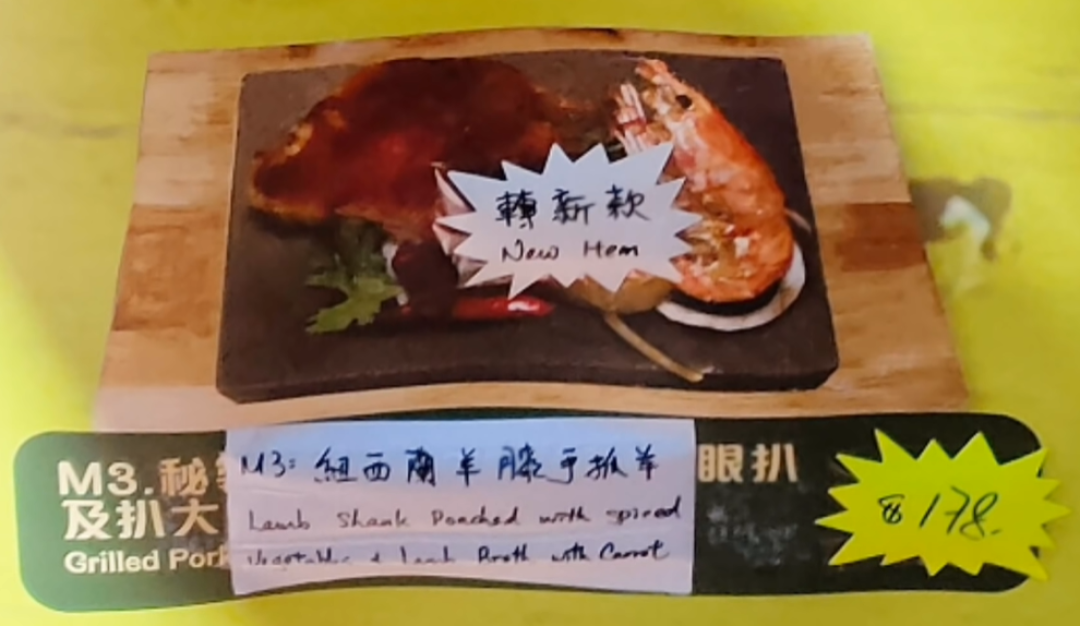 轉新款
New Item
M3.秘
M3: 紐西蘭羊膝手抓羊
眼扒
及扒大
Lamb Shank Poached with spiced
Grilled Pork
Vegetable & Lamb Broth with Carrot
$178.